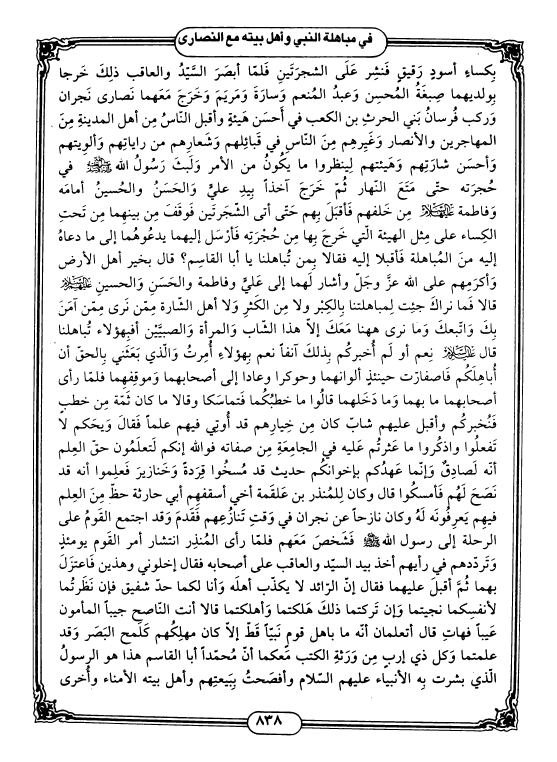 في مباهلة النبي وأهل بيته مع النصارى
بِكساءٍ أسودٍ رَقيقٍ فَنشِر عَلَى الشجرتَينِ فَلمّا أبصَرَ السَّيّدُ والعاقب ذلكَ خَرجا
بِولديهما صِبغَةُ المُحسِن وَعبدُ المُنعم وَسارَةَ وَمَريَم وَخَرَجَ مَعهما نَصارى نَجران
وَركب فُرسانُ بَني الحرثِ بن الكعب في أحسَنِ هَيئةٍ وأقبلَ الناسُ مِن أهل المدينةِ مِنَ
المهاجرين والأنصار وَغَيرِهِم مِنَ النّاسِ في قَبائِلهم وَشَعارِهم من راياتِهم وألويتهم
وأحسَنِ شارَتِهم وَهَيئتهم لِينظروا ما يَكُونُ من الأمرِ وَلَبثَ رَسُولُ الله ﷺ في
حُجرَته حتّى مَتَعَ النَّهار ثُمَّ خَرَجَ آخذاً بِيدِ عليٍّ وَالحَسَنُ وَالحُسينُ أمامَه
وَفاطمة عليها السلام مِن خَلفهم فَأقبَلَ بِهم حَتّى أتى الشّجَرتَينِ فَوقَفَ مِن بينِهما مِن تَحتِ
الكِساء على مِثل الهيئة الّتي خَرجَ بِها مِن حُجرَتِهِ فَأرسَل إليهما يدعُوهُما إلى ما دعاهُ
إليه منَ المُباهلة فَأقبلا إليه فقالا بِمن تُباهلنا يا أبا القاسِم؟ قال بخيرِ أهل الأرض
وَأكرَمِهم على الله عزَّ وَجلَّ وأشار لَهما إلى عَليٍّ وفاطمة والحَسَنِ وَالحسينِ عليهم السلام
قالا فَما نراكَ جئِت لِمباهلتنا بِالكِبْر ولا مِن الكَثرِ وَلا أهل الشّارة مِمّن نَرى مِمّن آمَنَ
بِكَ وَاتّبعكَ وَما نرى ههنا مَعَكَ إلاّ هذا الشّاب وَالمرأة والصبيَّيْنِ أفبِهؤلاء تُباهلنا
قال عليه السلام نِعم أو لَم أُخبركُم بِذلكَ آنفاً نعم بِهؤلاءِ أُمِرتُ وَالّذي بَعَثَني بِالحقّ أن
أُباهِلَكُم فَاصفارّت حينئذٍ ألوانهما وحوكرا وعادا إلى أصحابهما وَمَوقِفِهما فَلمّا رأى
أصحابهما ما بهما وَما دَخَلهما قالُوا ما خطبُكُما فَتماسَكا وقالا ما كان ثَمّة مِن خطبٍ
فَنُخبركُم وأقبل عليهم شابّ كان مِن خِيارِهم قَد أُوتي فيهم علماً فَقالَ وَيحكم لا
تَفعلُوا واذكُروا ما عَثرتُم عَليه في الجامعَةِ مِن صفاته فوالله إنكم لَتعلمُون حقّ العِلم
أنّه لَصادِقٌ وَإنّما عَهدُكم بِإخوانِكُم حديث قد مُسِخُوا قِرَدَةً وَخَنازيرَ فَعلموا أنه قد
نَصَحَ لَهُم فَأمسكُوا قال وكان لِلمُنذر بن عَلقمة أخي أسقفهم أبي حارثة حظّ مِنَ العِلم
فيهم يَعرِفُونَه لَهُ وكان نازحاً عن نجران في وَقتِ تَنازُعِهم فَقَدِمَ وَقد اجتمع القَومُ على
الرحلة إلى رسول الله ﷺ فَشَخصَ مَعَهم فَلمّا رأى المُنذِر انتشار أمر القَوم يومئذٍ
وَتَردّدهم في رأيهم أخذ بيد السيّد والعاقب على أصحابه فقال إخلوني وهذين فَاعتزَلَ
بهما ثُمَّ أقبلَ عليهما فقال إنّ الرّائد لا يكذّب أهلَه وَأنا لكما حدّ شفيق فإن نَظَرتُما
لأنفسِكما نجيتما وَإن تَركتما ذلكَ هَلكتما وَأهلكتما قالا أنت الناصح جيباً المأمون
عَيباً فهاتِ قال أتعلمان أنّه ما باهل قوم نَبيّاً قَط إلاّ كان مهلِكُهم كَلَمحِ البَصَر وَقد
علمتما وَكل ذي إربٍ مِن وَرَثةِ الكتب مَعكما أنّ مُحمّداً أبا القاسم هذا هو الرسولُ
الّذي بشرت بِه الأنبياء عليهم السلام وأفصَحتُ بِبَيعتِهم وأهل بيته الأمناء وأُخرى
٨٣٨